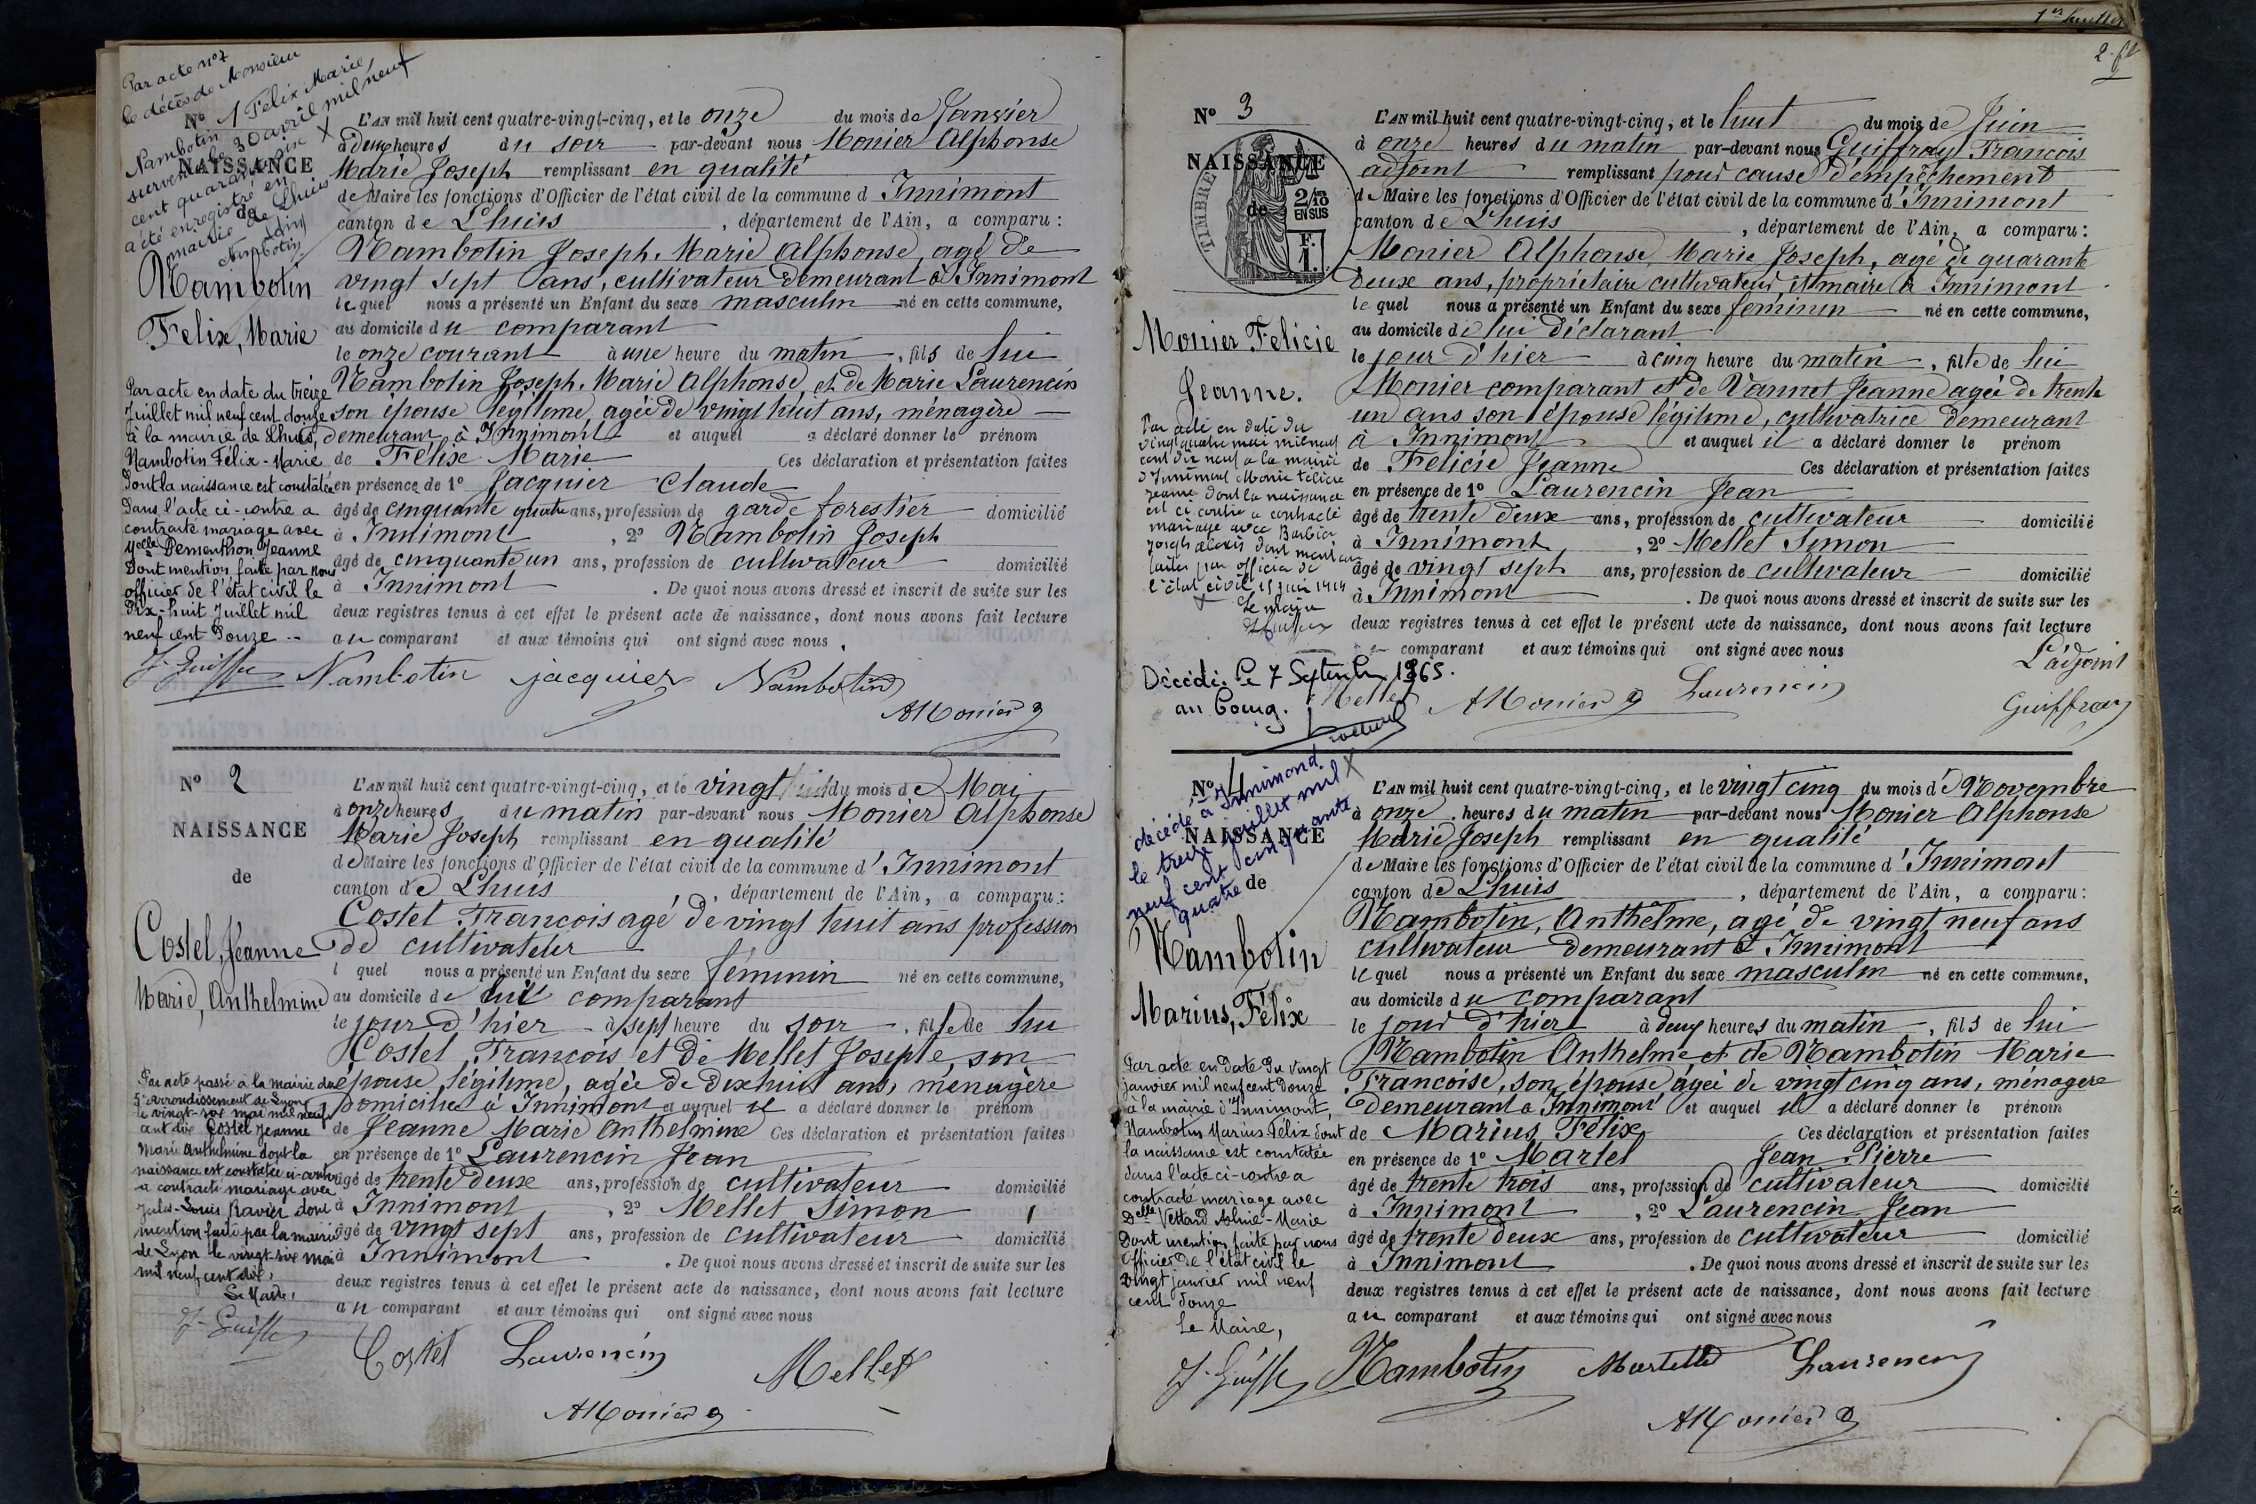 Par acte n° 7
le décès de Monsieur
Nambotin Felix Marie,
survenu le 30 avril mil neuf
cent quarante
a été enregistré en
mairie de Lhuis
Nambotin
N° 1
NAISSANCE
de
Nambotin
Felix, Marie
Par acte en date du treize
Juillet mil neuf cent douze
à la mairie de Lhuis,
Nambotin Félix-Marie
dont la naissance est constatée
dans l'acte ci-contre a
contracté mariage avec
Melle Dementhon Jeanne
Dont mention faite par nous
officier de l'état civil le
Dix-huit Juillet mil
neuf cent Douze
L'AN mil huit cent quatre-vingt-cinq, et le onze du mois de Janvier
à deux heures du soir par-devant nous Monier Alphonse
Marie Joseph remplissant en qualité
de Maire les fonctions d'Officier de l'état civil de la commune d Innimont
canton de Lhuis, département de l'Ain, a comparu :
Nambotin Joseph. Marie Alphonse, agé de
vingt sept ans, cultivateur demeurant à Innimont
le quel nous a présenté un Enfant du sexe masculin né en cette commune,
au domicile du comparant
le onze courant à une heure du matin, fils de lui
Nambotin Joseph. Marie Alphonse, et de Marie Laurencin
son épouse légitime, agée de vingt huit ans, ménagère
demeurant à Innimont et auquel a déclaré donner le prénom
de Félix Marie Ces déclaration et présentation faites
en présence de 1° Jacquier Claude
âgé de cinquante quatre ans, profession de garde forestier domicilié
à Innimont, 2° Nambotin Joseph
âgé de cinquante un ans, profession de cultivateur domicilié
à Innimont. De quoi nous avons dressé et inscrit de suite sur les
deux registres tenus à cet effet le présent acte de naissance, dont nous avons fait lecture
au comparant et aux témoins qui ont signé avec nous.
Nambotin jacquier Nambotin
AMonier
N° 2
NAISSANCE
de
Costel, Jeanne
Marie, Anthelmine
Par acte passé à la mairie du
5e arrondissement de Lyon
le vingt-six mai mil neuf
cent dix Costel Jeanne
Marie Anthelmine dont la
naissance est constatée ci-contre
a contracté mariage avec
Jules-Louis Ravier dont
mention faite par la mairie
de Lyon le vingt-six mai
mil neuf cent dix,
Le Maire,
L'AN mil huit cent quatre-vingt-cinq, et le vingt huit du mois de Mai
à onze heures du matin par-devant nous Monier Alphonse
Marie Joseph remplissant en qualité
de Maire les fonctions d'Officier de l'état civil de la commune d'Innimont
canton de Lhuis, département de l'Ain, a comparu :
Costel Francois agé de vingt huit ans profession
de cultivateur
l quel nous a présenté un Enfant du sexe féminin né en cette commune,
au domicile de lui comparant
le jour d'hier à sept heure du soir, fille de lui
Costel, Francois et de Mellet Josepte, son
épouse, légitime, agée de dix huit ans, ménagère
domiciliée à Innimont et auquel il a déclaré donner le prénom
de Jeanne Marie Anthelmine Ces déclaration et présentation faites
en présence de 1° Laurencin Jean
âgé de trente deux ans, profession de cultivateur domicilié
à Innimont, 2° Mellet Simon
âgé de vingt sept ans, profession de cultivateur domicilié
à Innimont. De quoi nous avons dressé et inscrit de suite sur les
deux registres tenus à cet effet le présent acte de naissance, dont nous avons fait lecture
au comparant et aux témoins qui ont signé avec nous
Costel Laurencin Mellet
AMonier
1er feuillet
2
N° 3
NAISSANCE
de
TIMBRE
2/10
EN SUS
F.
1.
Monier Felicie
Jeanne.
Par acte en date du
vingt quatre mai mil neuf
cent dix neuf a la mairie
d'Innimont Monier Félicie
Jeanne dont la naissance
est ci contre a contracté
mariage avec Barbier
Joseph dont mention
faite par officier de
l'état civil 1919
Le maire
Décédée le 7 Septembre 1965.
L'AN mil huit cent quatre-vingt-cinq, et le huit du mois de Juin
à onze heures du matin par-devant nous Guiffray Francois
adjoint remplissant pour cause d'empêchement
de Maire les fonctions d'Officier de l'état civil de la commune d'Innimont
canton de Lhuis, département de l'Ain, a comparu :
Monier Alphonse Marie Joseph, agé de quarante
deux ans, propriétaire cultivateur et maire à Innimont
le quel nous a présenté un Enfant du sexe féminin né en cette commune,
au domicile de lui déclarant
le jour d'hier à cinq heure du matin, fille de lui
Monier comparant et de Vannet Jeanne agée de trente
un ans son épouse légitime, cultivatrice demeurant
à Innimont et auquel il a déclaré donner le prénom
de Felicie Jeanne Ces déclaration et présentation faites
en présence de 1° Laurencin Jean
âgé de trente deux ans, profession de cultivateur domicilié
à Innimont, 2° Mellet Simon
âgé de vingt sept ans, profession de cultivateur domicilié
à Innimont. De quoi nous avons dressé et inscrit de suite sur les
deux registres tenus à cet effet le présent acte de naissance, dont nous avons fait lecture
comparant et aux témoins qui ont signé avec nous
L'adjoint
Mellet AMonier Laurencin Guiffray
N° 4
NAISSANCE
de
décédé à Innimond
le treize juillet mil
neuf cent cinquante
quatre
Nambotin
Marius, Félix
Par acte en date du vingt
janvier mil neuf cent douze
à la mairie d'Innimont,
Nambotin Marius Félix dont
la naissance est constatée
dans l'acte ci-contre a
contracté mariage avec
Delle Vettard -Marie
Dont mention faite par nous
Officier de l'état civil le
vingt janvier mil neuf
cent douze
Le Maire,
L'AN mil huit cent quatre-vingt-cinq, et le vingt cinq du mois de Novembre
à onze heures du matin par-devant nous Monier Alphonse
Marie Joseph remplissant en qualité
de Maire les fonctions d'Officier de l'état civil de la commune d'Innimont
canton de Lhuis, département de l'Ain, a comparu :
Nambotin, Anthelme, agé de vingt neuf ans
cultivateur demeurant à Innimont
le quel nous a présenté un Enfant du sexe masculin né en cette commune,
au domicile du comparant
le jour d'hier à deux heures du matin, fils de lui
Nambotin Anthelme et de Nambotin Marie
Francoise, son épouse âgée de vingt cinq ans, ménagère
demeurant à Innimont et auquel il a déclaré donner le prénom
de Marius Félix Ces déclaration et présentation faites
en présence de 1° Martel Jean Pierre
âgé de trente trois ans, profession de cultivateur domicilié
à Innimont, 2° Laurencin Jean
âgé de trente deux ans, profession de cultivateur domicilié
à Innimont. De quoi nous avons dressé et inscrit de suite sur les
deux registres tenus à cet effet le présent acte de naissance, dont nous avons fait lecture
au comparant et aux témoins qui ont signé avec nous
Nambotin Martel Laurencin
AMonier